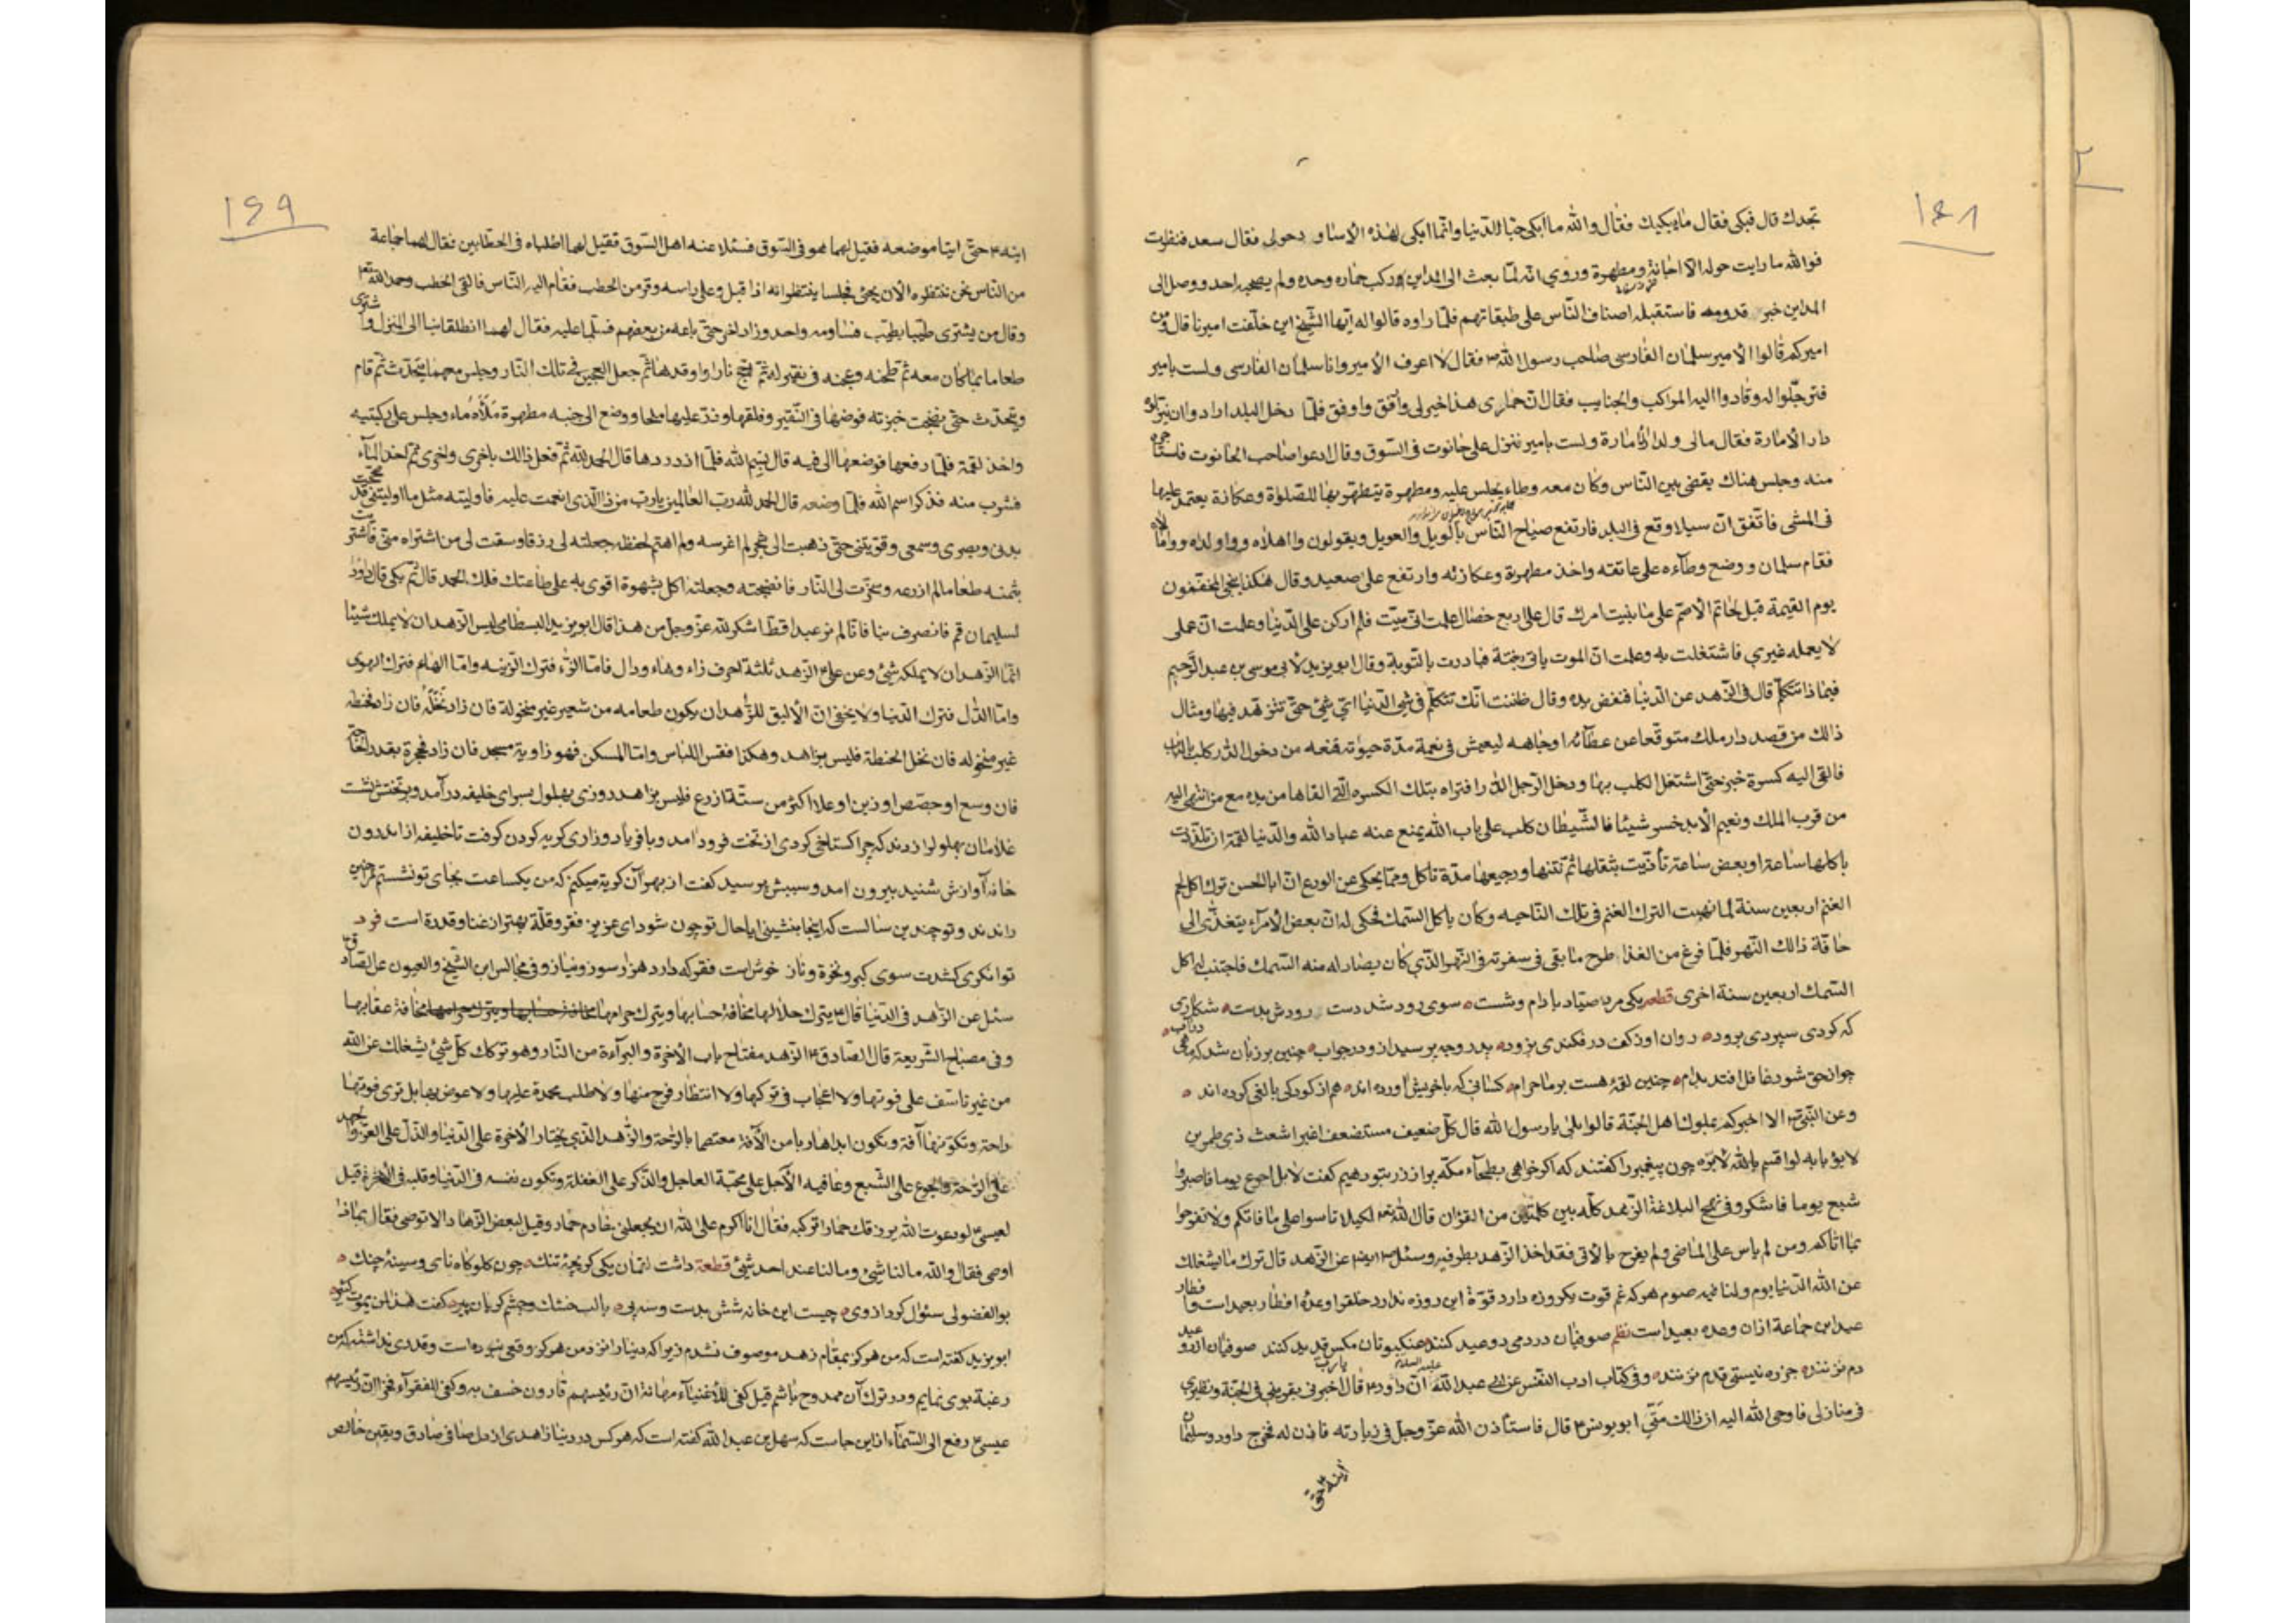 ١٦٨
تجدك قال فبكى فقال ما يبكيك فقال والله ما ابكى حبّا للدّنيا وانّما ابكى لهذه الاساود حولى فقال سعد فنظرت
فوالله ما رايت حوله الّا اجّانة ومطهرة وروي انّه لمّا بعث الى المداين وركب حماره وحده ولم يصحبه احد ووصل الى
المداين خبر قدومه فاستقبله اصناف النّاس على طبقاتهم فلمّا راوه قالوا له ايّها الشّيخ اين خلّفت اميرنا قال ومن
اميركم قالوا الامير سلمان الفارسى صاحب رسول الله ص فقال لا اعرف الامير وانا سلمان الفارسى ولست بامير
فترجّلوا له وقادوا اليه المراكب والجنايب فقال انّ حمارى هذا خير لى واوفق فلمّا دخل البلد ارادوا ان ينزلوه
دار الامارة فقال مالى ولدار الامارة ولست بامير ننزل على حانوت فى السّوق وقال ادعوا صاحب الحانوت فاستاجره
منه وجلس هناك يقضى بين النّاس وكان معه وطاء يجلس عليه ومطهرة يتطهّر بها للصّلوة وعكازة يعتمد عليها
فى المشى فاتّفق انّ سيلا وقع فى البلد فارتفع صياح النّاس بالويل والعويل ويقولون وااهلاه وواولداه ووامالاه
فقام سلمان ووضع وطآءه على عاتقه واخذ مطهرة وعكازته وارتفع على صعيد وقال هكذا ينجى المخفّفون
يوم القيمة قيل لحاتم الاصم على ما بنيت امرك قال على اربع خصال علمت انّى ميّت فلم اركن على الدّنيا وعلمت انّ عملى
لا يعمله غيري فاشتغلت به وعلمت انّ الموت ياتى بغتة فبادرت بالتّوبة وقال ابو يزيد لابى موسى بن عبد الرّحيم
فيماذا تتكلّم قال فى الزّهد عن الدّنيا فنفض يده وقال ظننت انّك تتكلّم فى شئ الدّنيا اىّ شئ حتّى تزهّد فيها ومثال
ذالك من قصد دار ملك متوقّعا من عطآئه وجاهه ليعيش فى نعمة مدّة حيوته فمنعه من دخول الدّار كلب بالباب
فالقى اليه كسرة خبز حتّى اشتغل الكلب بها ودخل الرّجل الدّار افتراه بتلك الكسره الّتى القاها من يده مع من انتهى اليه
من قرب الملك ونعيم الابد خسر شيئا فالشّيطان كلب على باب الله يمنع عنه عباد الله والدّنيا لقمة ان تلذّذت
باكلها ساعة وبعض ساعة تاذّيت بثقلها ثم نتنها ورجيعها مدّة تاكل وممّا يحكى عن الورع انّ ابا الحسن ترك اكل لحم
الغنم اربعين سنة لما نهبت الترك الغنم فى تلك النّاحيه وكان ياكل السّمك فحكى له انّ بعض الامرآء يتغذّى الى
حافّة ذالك النّهر فلمّا فرغ من الغذا طرح ما بقى فى سفرته فى النّهر الّذى كان يصاد له منه السّمك فاجتنب اكل
السّمك اربعين سنة اخرى قطعه يكى مرد صيّاد با دام وشست سوى رود شد دست رودش بدست شكارى
كه كردى سپردى برود روان او زكف درفكندى بزود پدر وجه پرسيد ازو در جواب چنين بر زبان شد كه ماهى در آب
چو از حق شود غافل افتد بدام چنين لقمه هست بر ما حرام كسانى كه با خويش آورده اند هم از كودكى با لقى كرده اند
وعن النّبىّ الا اخبركم بملوك اهل الجنّة قالوا بلى يا رسول الله قال كلّ ضعيف مستضعف اغبر اشعث ذى طمرين
لا يؤبا به لو اقسم بالله لابرّه چون پيغمبر را گفتند كه اگر خواهى بطحآء مكّه پر از زر بتو دهيم گفت لا بل اجوع يوما فاصبر و
اشبع يوما فاشكر وفى نهج البلاغة الزّهد كلّه بين كلمتين من القران قال الله لكيلا تاسوا على ما فاتكم ولا تفرحوا
بما اتاكم ومن لم ياس على الماضى ولم يفرح بالاتى فقد اخذ الزّهد بطرفيه وسئل عن الزّهد قال ترك ما يشغلك
عن الله الدّنيا يوم ولنا فيه صوم هر كه غم قوت يكروزه دارد قوّة اين روزه ندارد حلقرا وعدّه افطار بعيد است وافطار
عيد اين جماعة ازان وعده بعيد است نظم صوفيان در دمى دو عيد كنند عنكبوتان مگس قديد كنند صوفيان از دو عيد
دم نزنند جز ره نيستى قدم نزنند وفى كتاب ادب النّفس عن ابى عبد الله عليه السلام انّ داود قال يا ربّ اخبرنى بقرينى فى الجنّة ونظيرى
فى منازلى فاوحى الله اليه انّ ذالك متّى ابو يونس قال فاستاذن الله عزّ وجلّ فى زيارته فاذن له فخرج داود وسليمان
ابنه حتّى
١٦٩
ابنه حتّى اتيا موضعه فقيل لهما هو فى السّوق فسئلا عنه اهل السّوق فقيل لهما اطلباه فى الحطّابين فقال لهما جماعة
من النّاس نحن ننتظره الان يجئ فجلسا ينتظرانه اذ اقبل وعلى راسه وقر من الحطب فقام اليه النّاس فالقى الحطب وحمد الله
وقال من يشترى طيّبا بطيّب فساومه واحد وزاد اخر حتّى باعه من بعضهم فسلّما عليه فقال لهما انطلقا بنا الى المنزل واشترى
طعاما بما كان معه ثم طحنه وعجنه فى نقير له ثم اجّج نارا واوقدها ثم جعل العجين فى تلك النّار وجلس معهما يتحدّث ثم قام
ويتحدّث حتى نضجت خبزته فوضعها فى النّقير وفلقها وذرّ عليها ملحا ووضع الى جنبه مطهرة ملأه ماء وجلس على ركبتيه
واخذ لقمة فلمّا رفعها فوضعها الى فيه قال بسم الله فلمّا ازدردها قال الحمد لله ثم فعل ذالك باخرى واخرى ثم اخذ المآء
فشرب منه فذكر اسم الله فلمّا وضعه قال الحمد لله ربّ العالمين يا ربّ من ذا الّذى انعمت عليه فاوليته مثل ما اوليتنى قد صحّحت
بدنى وبصرى وسمعى وقوّيتنى حتّى ذهبت الى شجر لم اغرسه ولم اهتم لحفظه جعلته لى رزقا وسقت لى من اشتراه منّى فاشتريت
بثمنه طعاما لم ازرعه وسخّرت لى النّار فانضجته وجعلته اكل بشهوة اقوى به على طاعتك فلك الحمد قال ثم بكى قال داود
لسليمان قم فانصرف بنا فانّا لم نر عبدا قطّ اشكر لله عزّ وجلّ من هذا قال ابو يزيد البسطامى ليس الزّهد ان لا يملك شيئا
انّما الزّهد ان لا يملكه شئ وعن على الزّهد ثلثة احرف زاء وهاء ودال فامّا الزّاء فترك الزّينه وامّا الهاء فترك الهوى
وامّا الدّال فترك الدّنيا ولا يخفى انّ الاليق للزّهد ان يكون طعامه من شعير غير منخولة فان زاد نخّله فان زاد فحنطه
غير منخوله فان نخل الحنطة فليس بزاهد وهكذا فقس اللباس وامّا المسكن فهو زاوية مسجد فان زاد فحجرة بقدر الحاجة
فان وسع او جصّص او زين او علا اكثر من ستّة ازرع فليس بزاهد روزى بهلول بسراى خليفه درآمد وبر تختش نشست
غلامان بهلولرا زدند كه چرا گستاخى كردى از تخت فرود آمد وبا فرياد وزارى گريه كردن گرفت تا خليفه از اندرون
خانه آوازش شنيد بيرون آمد وسببش پرسيد گفت از بهر آن گريه ميكنم كه من يكساعت بجاى تو نشستم مرا چنين
راندند وتو چندين سالست كه اينجا بنشينى ايا حال تو چون شود اى عزيز فقر وقلّة بهتر از غنا وقدرة است فرد
توانگرى كشدت سوى كبر ونخوة وناز خوش است فقر كه دارد هزار سوز ونياز وفى مجالس ابن الشّيخ والعيون عن الصّادق
سئل عن الزّاهد فى الدّنيا قال يترك حلالها مخافة حسابها ويترك حرامها مخافة حسابها ويترك حرامها مخافة عقابها
وفى مصباح الشّريعة قال الصّادق الزّهد مفتاح باب الاخرة والبرآءة من النّار وهو تركك كلّ شئ يشغلك عن الله
من غير تاسّف على فوتها ولا اعجاب فى تركها ولا انتظار فرج منها ولا طلب محمدة عليها ولا عوض بها بل ترى فوتها
راحة وكونها آفة وتكون ابدا هاربا من الآفة معتصما بالرّاحة والزّاهد الّذي يختار الاخرة على الدّنيا والذّل على العزّ والجهد
على الرّاحة والجوع على الشّبع وعافيه الآجل على محبّة العاجل والذّكر على الغفلة وتكون نفسه فى الدّنيا وقلبه فى الاخرة قيل
لعيسى لو دعوت الله يرزقك حمارا تركبه فقال انا اكرم على الله ان يجعلنى خادم حمار وقيل لبعض الزّهاد الا توصى فقال بماذا
اوصى فقال والله ما لنا شئ وما لنا عند احد شئ قطعة داشت لقمان يكى كريچۀ تنگ چون گلوگاه ناى وسينۀ چنگ
بوالفضولى سئوال كرد از وى چيست اين خانه شش بدست وسه پى با لب خشك وچشم گريان پير گفت هذا لمن يموت كثير
ابو يزيد گفته است كه من هرگز بمقام زهد موصوف نشدم زيرا كه دنيا را نزد من هرگز وقعى نبوده است وقدرى نداشته كه من
رغبة بوى نمايم ودر ترك آن ممدوح باشم قيل كفى للاغنيآء مهانة انّ رئيسهم قارون خسف به وكفى للفقرآء فخرا انّ رئيسهم
عيسى رفع الى السّمآء ازاين جاست كه سهل بن عبد الله گفته است كه هر كس در دنيا زاهدى از دل صافى صادق ويقين خالص